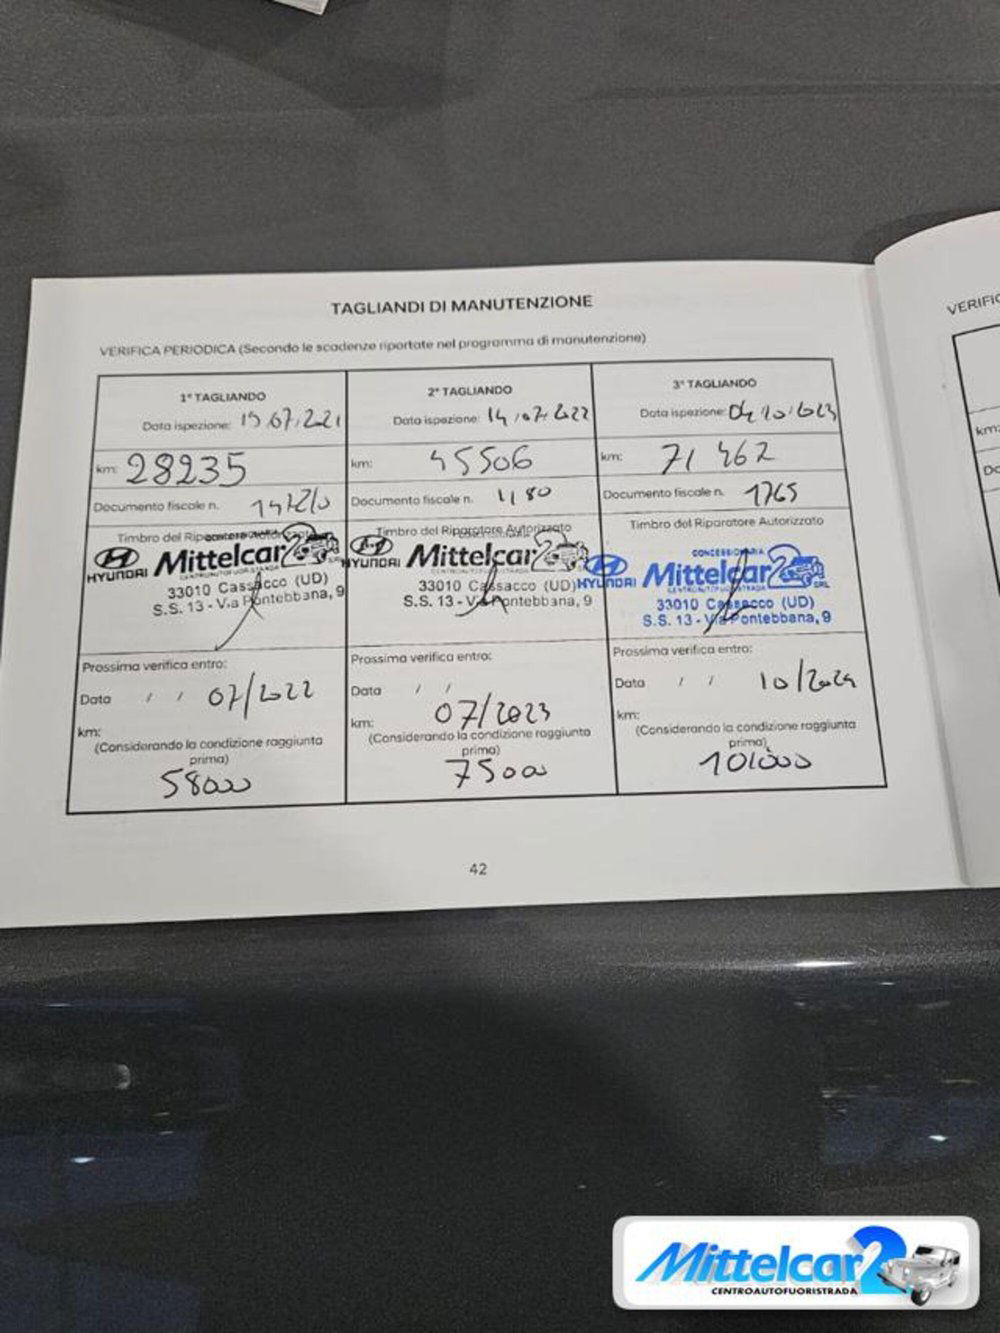 TAGLIANDI DI MANUTENZIONE
VERIFICA PERIODICA (Secondo le scadenze riportate nel programma di manutenzione)
1° TAGLIANDO
Data ispezione: 19.07.2021
km: 28235
Documento fiscale n.
Timbro del Riparatore
HYUNDAI Mittelcar2
CENTROAUTOFUORISTRADA
33010 Cassacco (UD)
S.S. 13 - Via Pontebbana, 9
Prossima verifica entro:
Data / / 07/2022
km:
(Considerando la condizione raggiunta
prima)
58000
2° TAGLIANDO
Data ispezione: 14/07/2022
km: 45506
Documento fiscale n. 1180
Timbro del Riparatore Autorizzato
HYUNDAI Mittelcar2
CENTROAUTOFUORISTRADA
33010 Cassacco (UD)
S.S. 13 - Via Pontebbana, 9
Prossima verifica entro:
Data / /
07/2023
km:
(Considerando la condizione raggiunta
prima)
75000
3° TAGLIANDO
Data ispezione: 04/10/2023
km: 71462
Documento fiscale n. 1765
Timbro del Riparatore Autorizzato
CONCESSIONARIA
HYUNDAI Mittelcar2 SRL
CENTROAUTOFUORISTRADA
33010 Cassacco (UD)
S.S. 13 - Via Pontebbana, 9
Prossima verifica entro:
Data / / 10/2024
km:
(Considerando la condizione raggiunta
prima)
101000
42
VERIFIC
km:
Do
Mittelcar2
CENTROAUTOFUORISTRADA